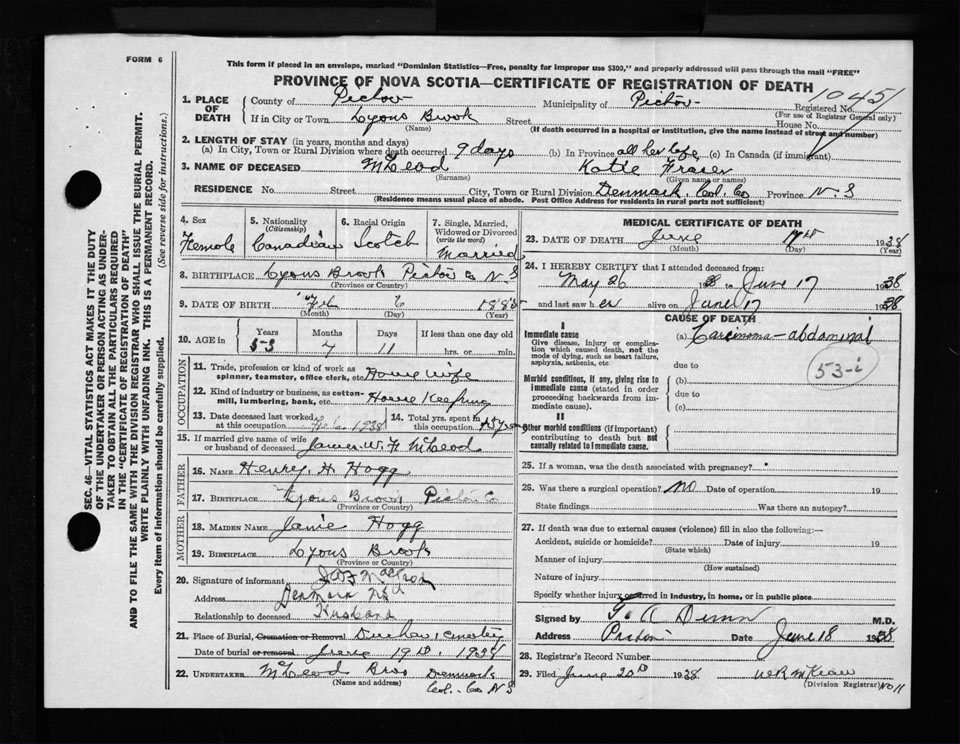 FORM 6
This form if placed in an envelope, marked "Dominion Statistics—Free, penalty for improper use $300," and properly addressed will pass through the mail "FREE"
PROVINCE OF NOVA SCOTIA—CERTIFICATE OF REGISTRATION OF DEATH
1045
1. PLACE OF DEATH County of Pictou Municipality of Pictou Registered No.
(For use of Registrar General only)
If in City or Town Lyons Brook Street House No.
(Name) (If death occurred in a hospital or institution, give the name instead of street and number)
2. LENGTH OF STAY (in years, months and days)
(a) In City, Town or Rural Division where death occurred 9 days (b) In Province all her life (c) In Canada (if immigrant)
3. NAME OF DECEASED McLeod Katie Fraser
(Surname) (Given name or names)
RESIDENCE No. Street City, Town or Rural Division Denmark, Col. Co Province N.S
(Residence means usual place of abode. Post Office Address for residents in rural parts not sufficient)
4. Sex 5. Nationality (Citizenship) 6. Racial Origin 7. Single, Married, Widowed or Divorced (write the word)
Female Canadian Scotch Married
8. BIRTHPLACE Lyons Brook Pictou Co N.S
(Province or Country)
9. DATE OF BIRTH 6 1885
(Month) (Day) (Year)
10. AGE in Years Months Days If less than one day old
53 11 hrs. or min.
OCCUPATION
11. Trade, profession or kind of work as spinner, teamster, office clerk, etc. House wife
12. Kind of industry or business, as cotton-mill, lumbering, bank, etc. House Keeping
13. Date deceased last worked at this occupation 1938 14. Total yrs. spent in this occupation
15. If married give name of wife or husband of deceased James W. H McLeod
FATHER
16. NAME Henry H. Hogg
17. BIRTHPLACE Lyons Brook Pictou Co
(Province or Country)
MOTHER
18. MAIDEN NAME Janie Hogg
19. BIRTHPLACE Lyons Brook
(Province or Country)
20. Signature of informant
Address Denmark
Relationship to deceased Husband
21. Place of Burial, Cremation or Removal
Date of burial or removal June 19th, 1938
22. UNDERTAKER McLeod Bros Denmark
(Name and address) Col. Co N S
MEDICAL CERTIFICATE OF DEATH
23. DATE OF DEATH June 17th 1938
(Month) (Day)
24. I HEREBY CERTIFY that I attended deceased from
May 26 1938 to June 17 1938
and last saw her alive on June 17 1938
CAUSE OF DEATH
I
Immediate cause (a) Carcinoma—abdominal
Give disease, injury or complication which caused death, not the mode of dying, such as heart failure, asphyxia, asthenia, etc.
53-i
due to
Morbid conditions, if any, giving rise to immediate cause (stated in order proceeding backwards from immediate cause). (b)
due to
(c)
II
Other morbid conditions (if important) contributing to death but not causally related to immediate cause.
25. If a woman, was the death associated with pregnancy?
26. Was there a surgical operation? no Date of operation 19
State findings Was there an autopsy?
27. If death was due to external causes (violence) fill in also the following:—
Accident, suicide or homicide? Date of injury 19
(State which)
Manner of injury
(How sustained)
Nature of injury
Specify whether injury occurred in industry, in home, or in public place
Signed by Dunn M.D.
Address Pictou Date June 18 1938
28. Registrar's Record Number
29. Filed June 20th 1938
(Division Registrar) No 11
SEC. 46—VITAL STATISTICS ACT MAKES IT THE DUTY
OF THE UNDERTAKER OR PERSON ACTING AS UNDER-
TAKER TO OBTAIN ALL THE PARTICULARS REQUIRED
IN THE "CERTIFICATE OF REGISTRATION OF DEATH"
AND TO FILE THE SAME WITH THE DIVISION REGISTRAR WHO SHALL ISSUE THE BURIAL PERMIT.
WRITE PLAINLY WITH UNFADING INK. THIS IS A PERMANENT RECORD.
Every item of Information should be carefully supplied. (See reverse side for instructions.)